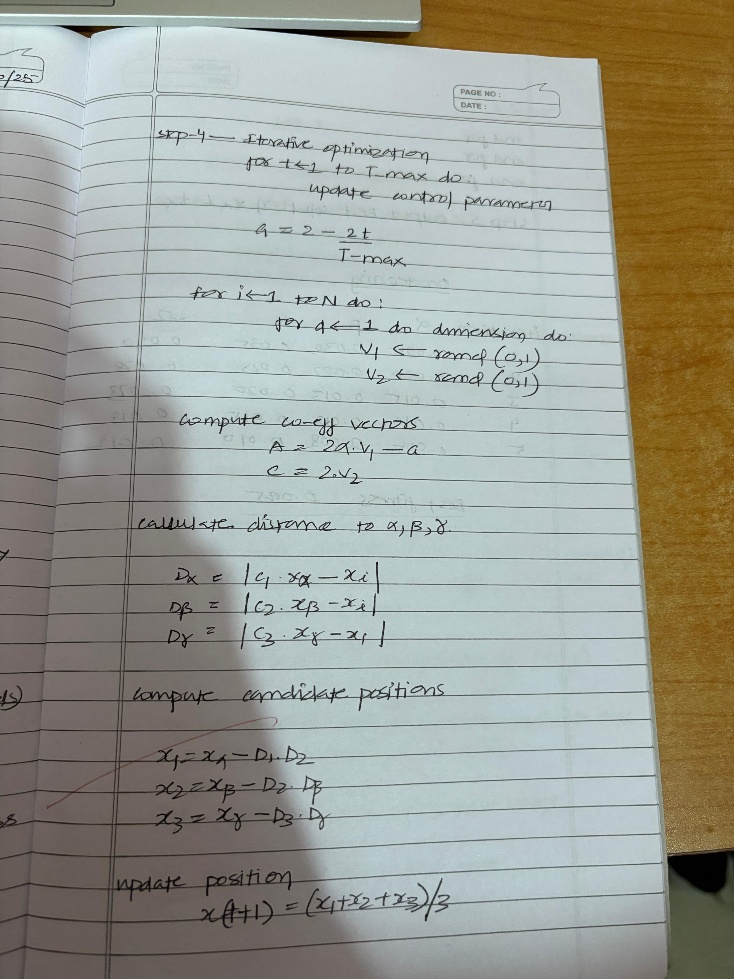 0/25
PAGE NO :
DATE :
step-4 — Iterative optimization
for t←1 to T-max do:
update control parameters
a = 2 - 2t
T-max
for i←1 to N do:
for d←1 do dimension do:
V1 ← rand (0,1)
V2 ← rand (0,1)
compute co-eff vectors
A = 2a.V1 - a
C = 2.V2
calculate distance to α, β, γ.
Dα = |C1 . xα - xi|
Dβ = |C2 . xβ - xi|
Dγ = |C3 . xγ - x1|
compute candidate positions
x1 = xα - D1. D2
x2 = xβ - D2. Dβ
x3 = xγ - D3. Dγ
update position
x(t+1) = (x1+x2+x3)/3